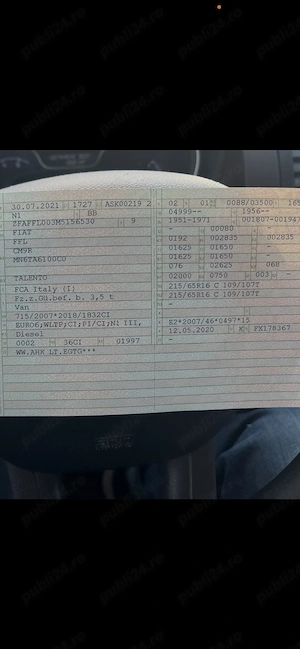 30.07.2021 1727 ASK00219 2
N1 BB
ZFAFFL003M5156530 9
FIAT
FFL
CM9B
MN6TA6100C0
TALENTO
FCA Italy (I)
Fz.z.Gü.bef.b. 3,5 t
Van
715/2007*2018/1832CI
EURO6;WLTP;CI;PI/CI;N1 III,
Diesel
0002 36CI 01997
WW.AHK LT.EGTG***
02 01 0088/03500 165
04999-- 1956--
1951-1971 001807-001947
- 00080
0192 002835 002835
01625 01650 -
01625 01650 -
076 02625 068
02000 0750 003 -
215/65R16 C 109/107T
215/65R16 C 109/107T
-
-
E2*2007/46*0497*15
12.05.2020 K FX178367
-